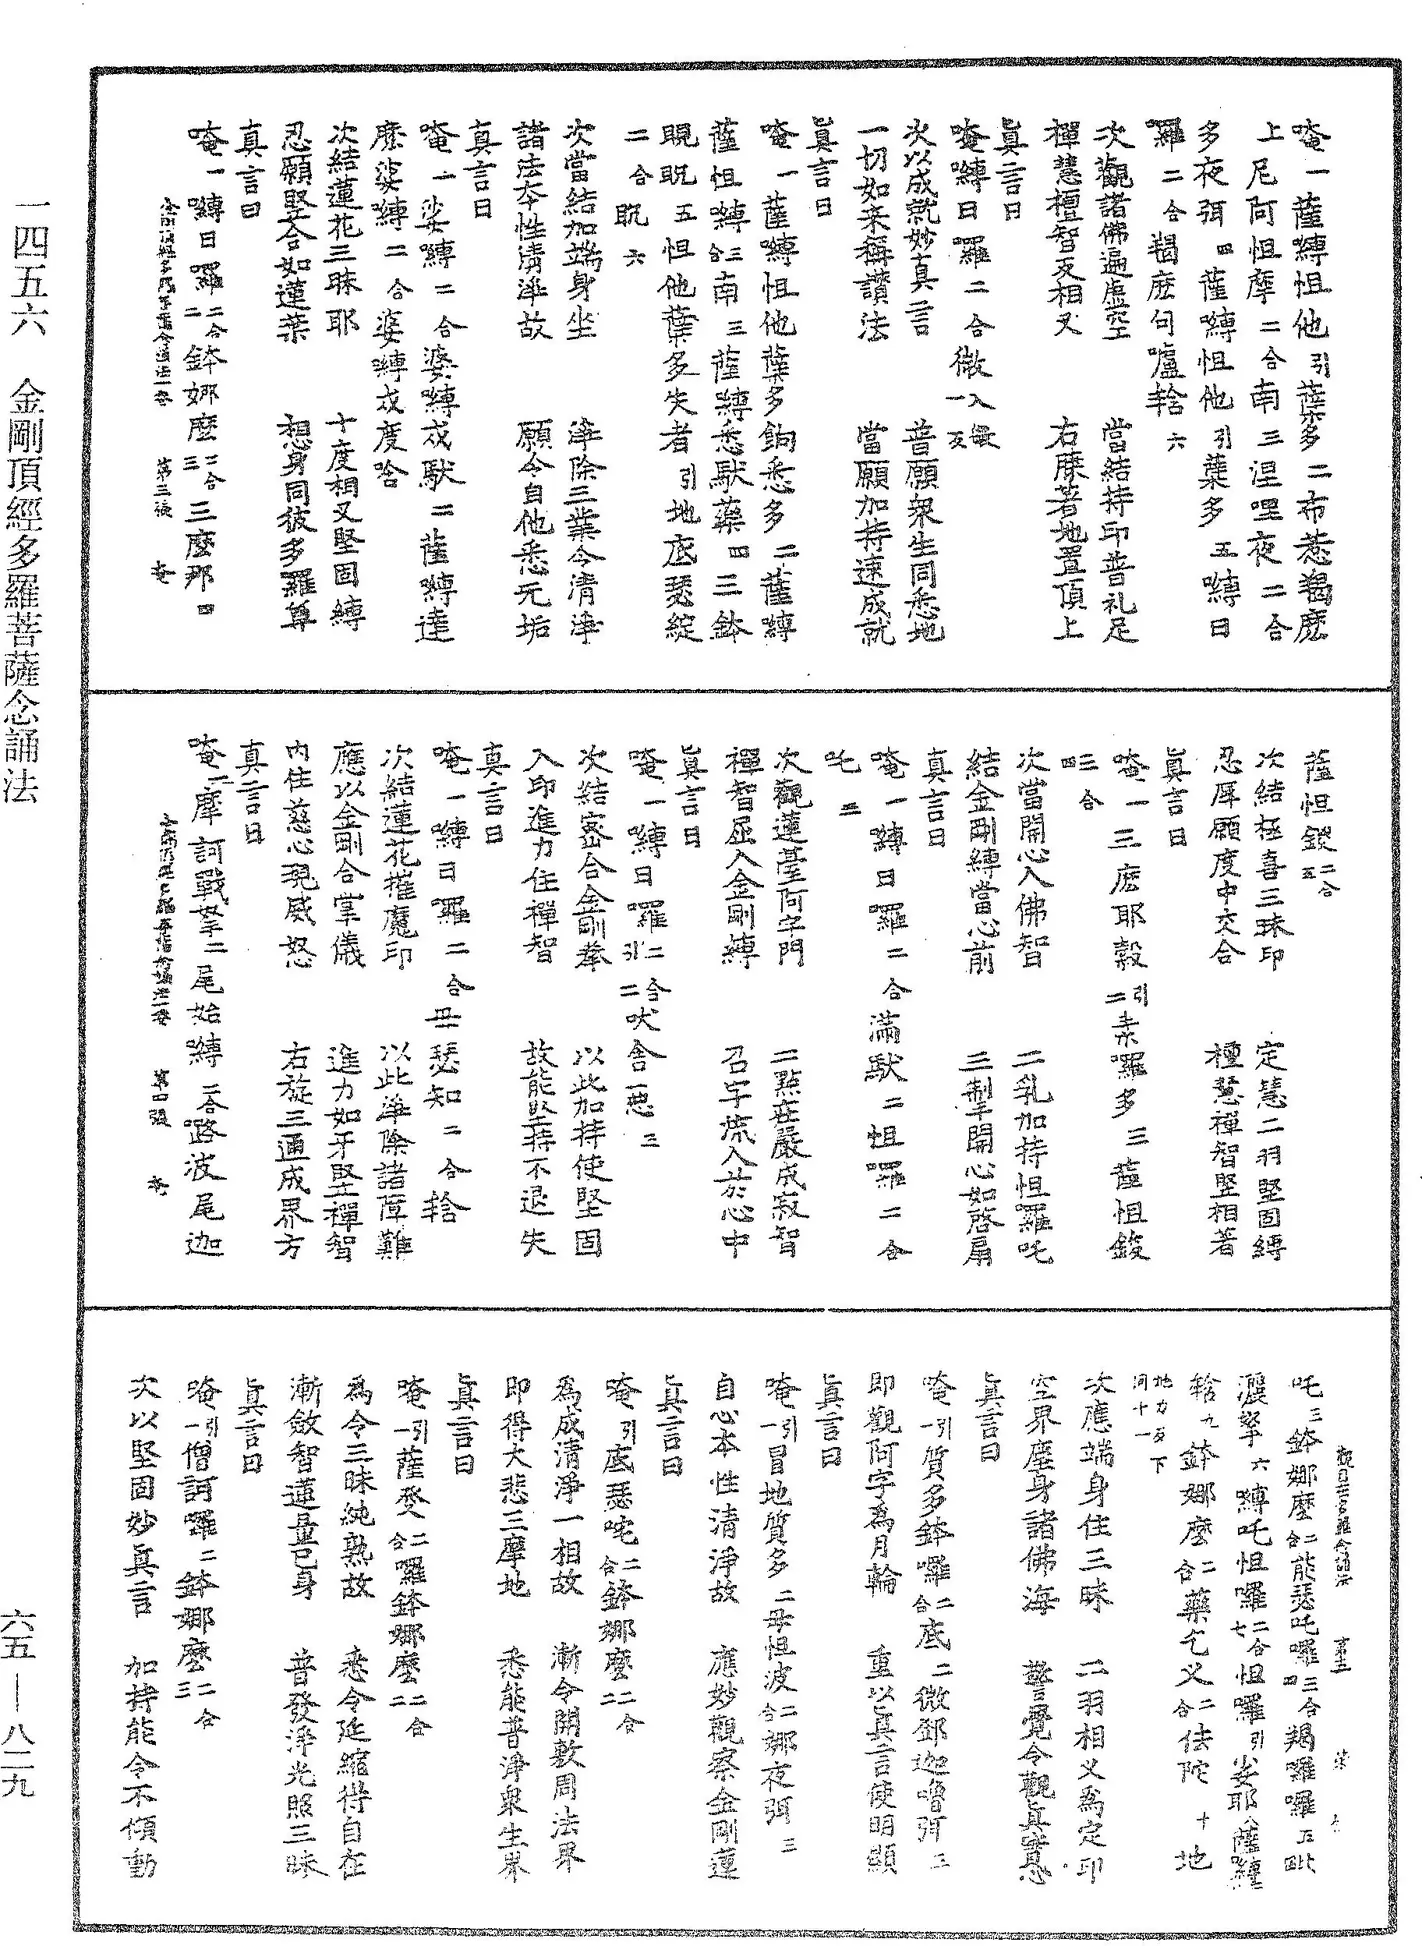 唵一薩嚩怛他引蘖多二布惹羯麽
上尼阿怛摩二合南三涅哩夜二合
多夜弭四薩嚩怛他引蘖多五嚩日
羅二合羯麽句嚧轄六
次觀諸佛遍虛空　當結持印普礼足
禪慧檀智反相叉　右膝著地置頂上
真言曰
唵嚩日羅二合微一入反
次以成就妙真言　普願衆生同悉地
一切如来稱讚法　當願加持速成就
真言曰
唵一薩嚩怛他蘖多餉悉多二薩嚩
薩怛嚩二合南三薩嚩悉馱藥四三鉢
睍睍五怛他蘖多失者引地底瑟綻
二合睍六
次當結加端身坐　淨除三業令清淨
諸法本性清淨故　願令自他悉无垢
真言曰
唵一娑嚩二合婆嚩戍馱二薩嚩達
麽娑嚩二合婆嚩戍度唅
次結蓮花三昧耶　十度相叉堅固縛
忍願竪合如蓮葉　想身同彼多羅尊
真言曰
唵一嚩日囉二合二鉢娜麼二合三三麼那四
金剛頂經多羅菩薩念誦法一卷　第三張
薩怛鑁二合五
次結極喜三昧印　定慧二羽堅固縛
忍辱願度中交合　檀慧禪智竪相著
真言曰
唵一三麽耶穀引二素囉多三薩怛鍐
二合四
次當開心入佛智　二乳加持怛羅吒
結金剛縛當心前　三掣開心如啓扇
真言曰
唵一嚩日羅二合滿馱二怛羅二合
吒三
次觀蓮臺阿字門　二點在嚴成寂智
禪智屈入金剛縛　召字流入於心中
真言曰
唵一嚩日囉二合引二吠舍惡三
次結密合金剛拳　以此加持使堅固
入印進力住禪智　故能堅持不退失
真言曰
唵一嚩日囉二合母瑟知二合轄
次結蓮花摧魔印　以此淨除諸障難
應以金剛合掌儀　進力如牙竪禪智
内住慈心現威怒　右旋三遍成界方
真言曰
唵一摩訶戰拏二尾始嚩二合路波尾迦
金剛頂經多羅菩薩念誦法一卷　第四張
觀自在多羅念誦法　第五
吒三鉢娜麽二合能瑟吒囉二合四羯囉囉五毗
灑拏六嚩吒怛囉二合七怛羅引娑耶八薩嚩
轄九鉢娜麽二合藥乞义二合佉陀十地
地力反下同十一
次應端身住三昧　二羽相义為定印
空界塵身諸佛海　警覺令觀真實心
真言曰
唵引一質多鉢囉二合底二微鄧迦嚕弭三
即觀阿字為月輪　重以真言使明顯
真言曰
唵引一冒地質多二母怛波二合娜夜弭三
自心本性清淨故　應妙觀察金剛蓮
真言曰
唵引一底瑟咤二合鉢娜麼二合二
為成清淨一相故　漸令開敷周法界
即得大悲三摩地　悉能普淨衆生界
真言曰
唵引一薩癹二合囉鉢娜麼二合二
為令三昧純熟故　悉令延縮得自在
漸斂智蓮量已身　普發淨光照三昧
真言曰
唵引一僧訶囉二鉢娜麼二合三
次以堅固妙真言　加持能令不傾動
一四五六　金剛頂經多羅菩薩念誦法
六五—八二九